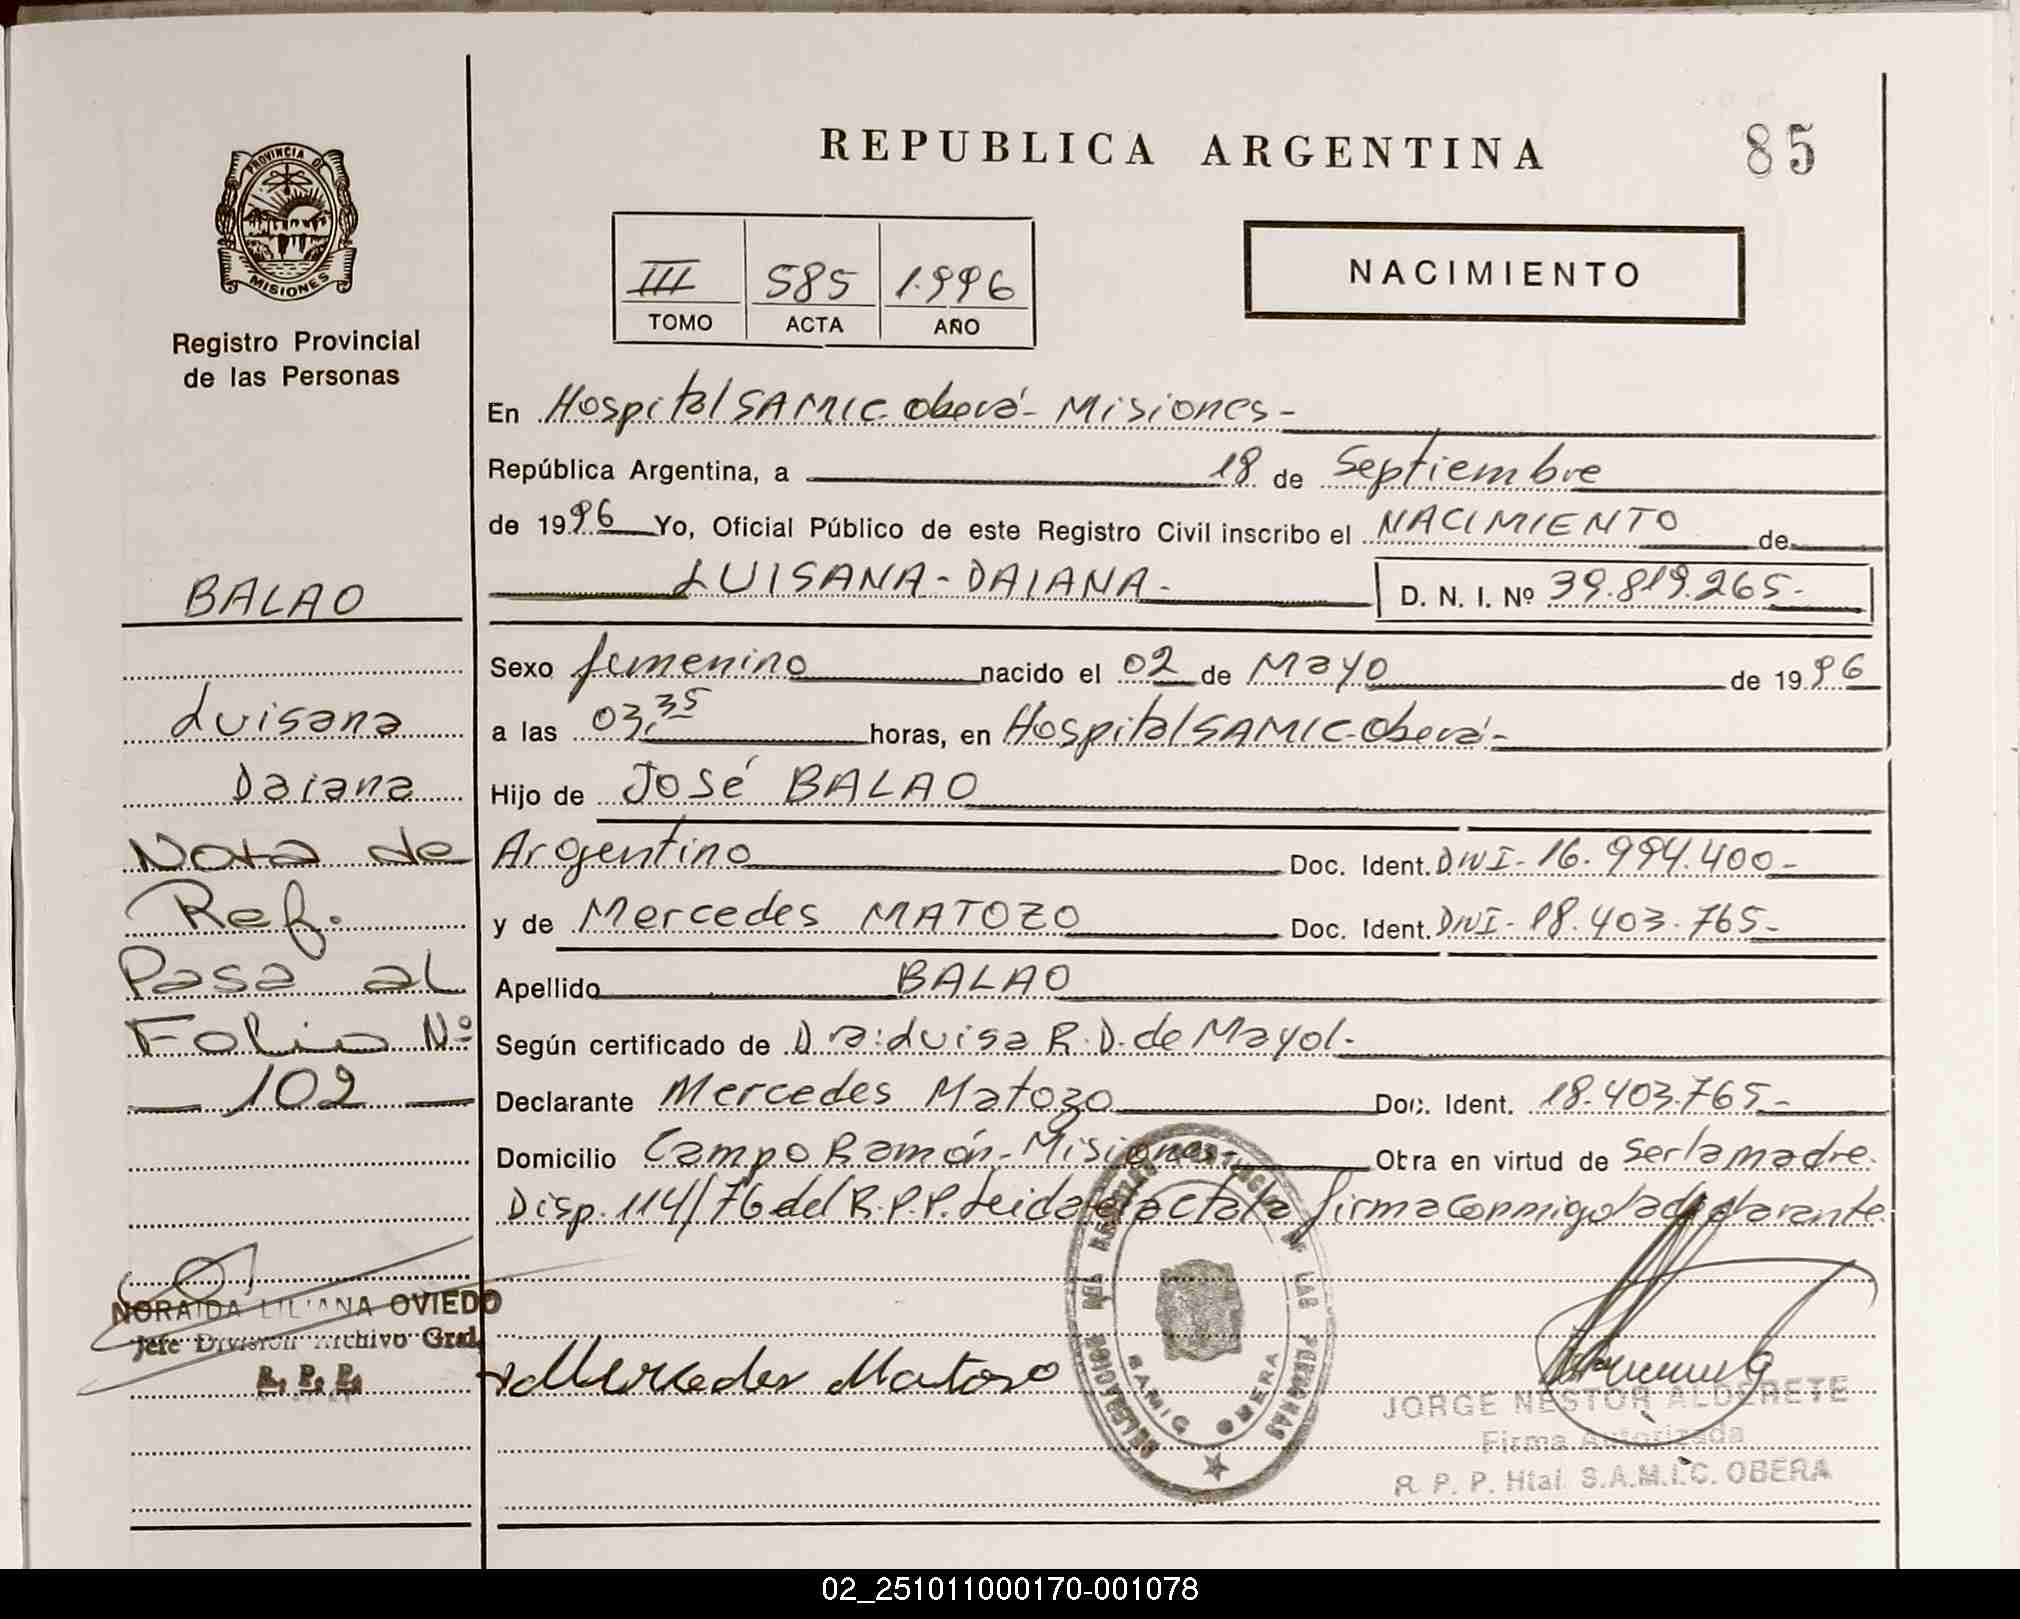 REPUBLICA ARGENTINA
85
PROVINCIA DE
MISIONES
Registro Provincial
de las Personas
III 585 1.996
TOMO ACTA AÑO
NACIMIENTO
En Hospital SAMIC. oberá - Misiones -
República Argentina, a 18 de Septiembre
de 1996 Yo, Oficial Público de este Registro Civil inscribo el NACIMIENTO de
LUISANA - DAIANA - D. N. I. Nº 39.819.265-
Sexo femenino nacido el 02 de Mayo de 1996
a las 03,35 horas, en Hospital SAMIC. oberá -
Hijo de José BALAO
Argentino Doc. Ident. DNI - 16.994.400-
y de Mercedes MATOZO Doc. Ident. DNI - 18.403.765-
Apellido BALAO
Según certificado de Dra: Luisa R. D. de Mayol.
Declarante Mercedes Matozo Doc. Ident. 18.403.765-
Domicilio Campo Ramón - Misiones - Obra en virtud de ser la madre.
Disp. 114/76 del R.P.P. Leida el acta la firma conmigo la declarante.
BALAO
Luisana
Daiana
Nota de
Ref.
Pasa al
Folio Nº
102
NORAIDA LILIANA OVIEDO
Jefe División Archivo Gral.
R. P. P.
Mercedes Matozo
DELEGACION DEL REGISTRO PROVINCIAL DE LAS PERSONAS
SAMIC OBERA
JORGE NESTOR ALDERETE
Firma Autorizada
R. P. P. Htal. S.A.M.I.C. OBERA
02_251011000170-001078